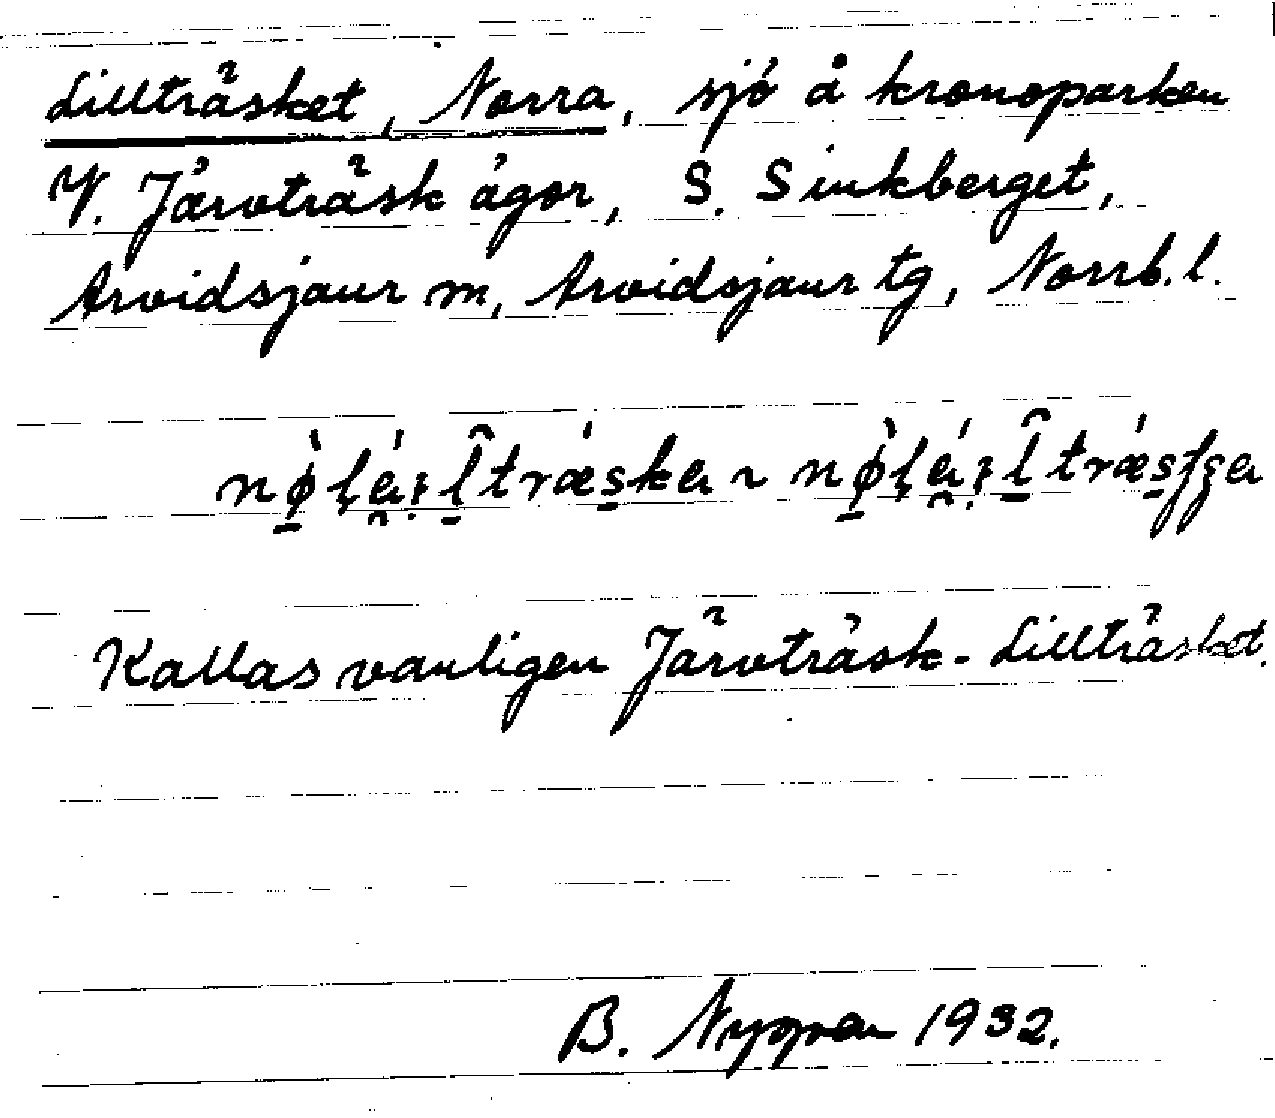 Lillträsket, Norra, sjö å kronoparken
V. Järvträsk ägor, S. Sinkberget,
Arvidsjaur sn, Arvidsjaur tg, Norrb. l.
Kallas vanligen Järvträsk-Lillträsket.
B. Nygren 1932.